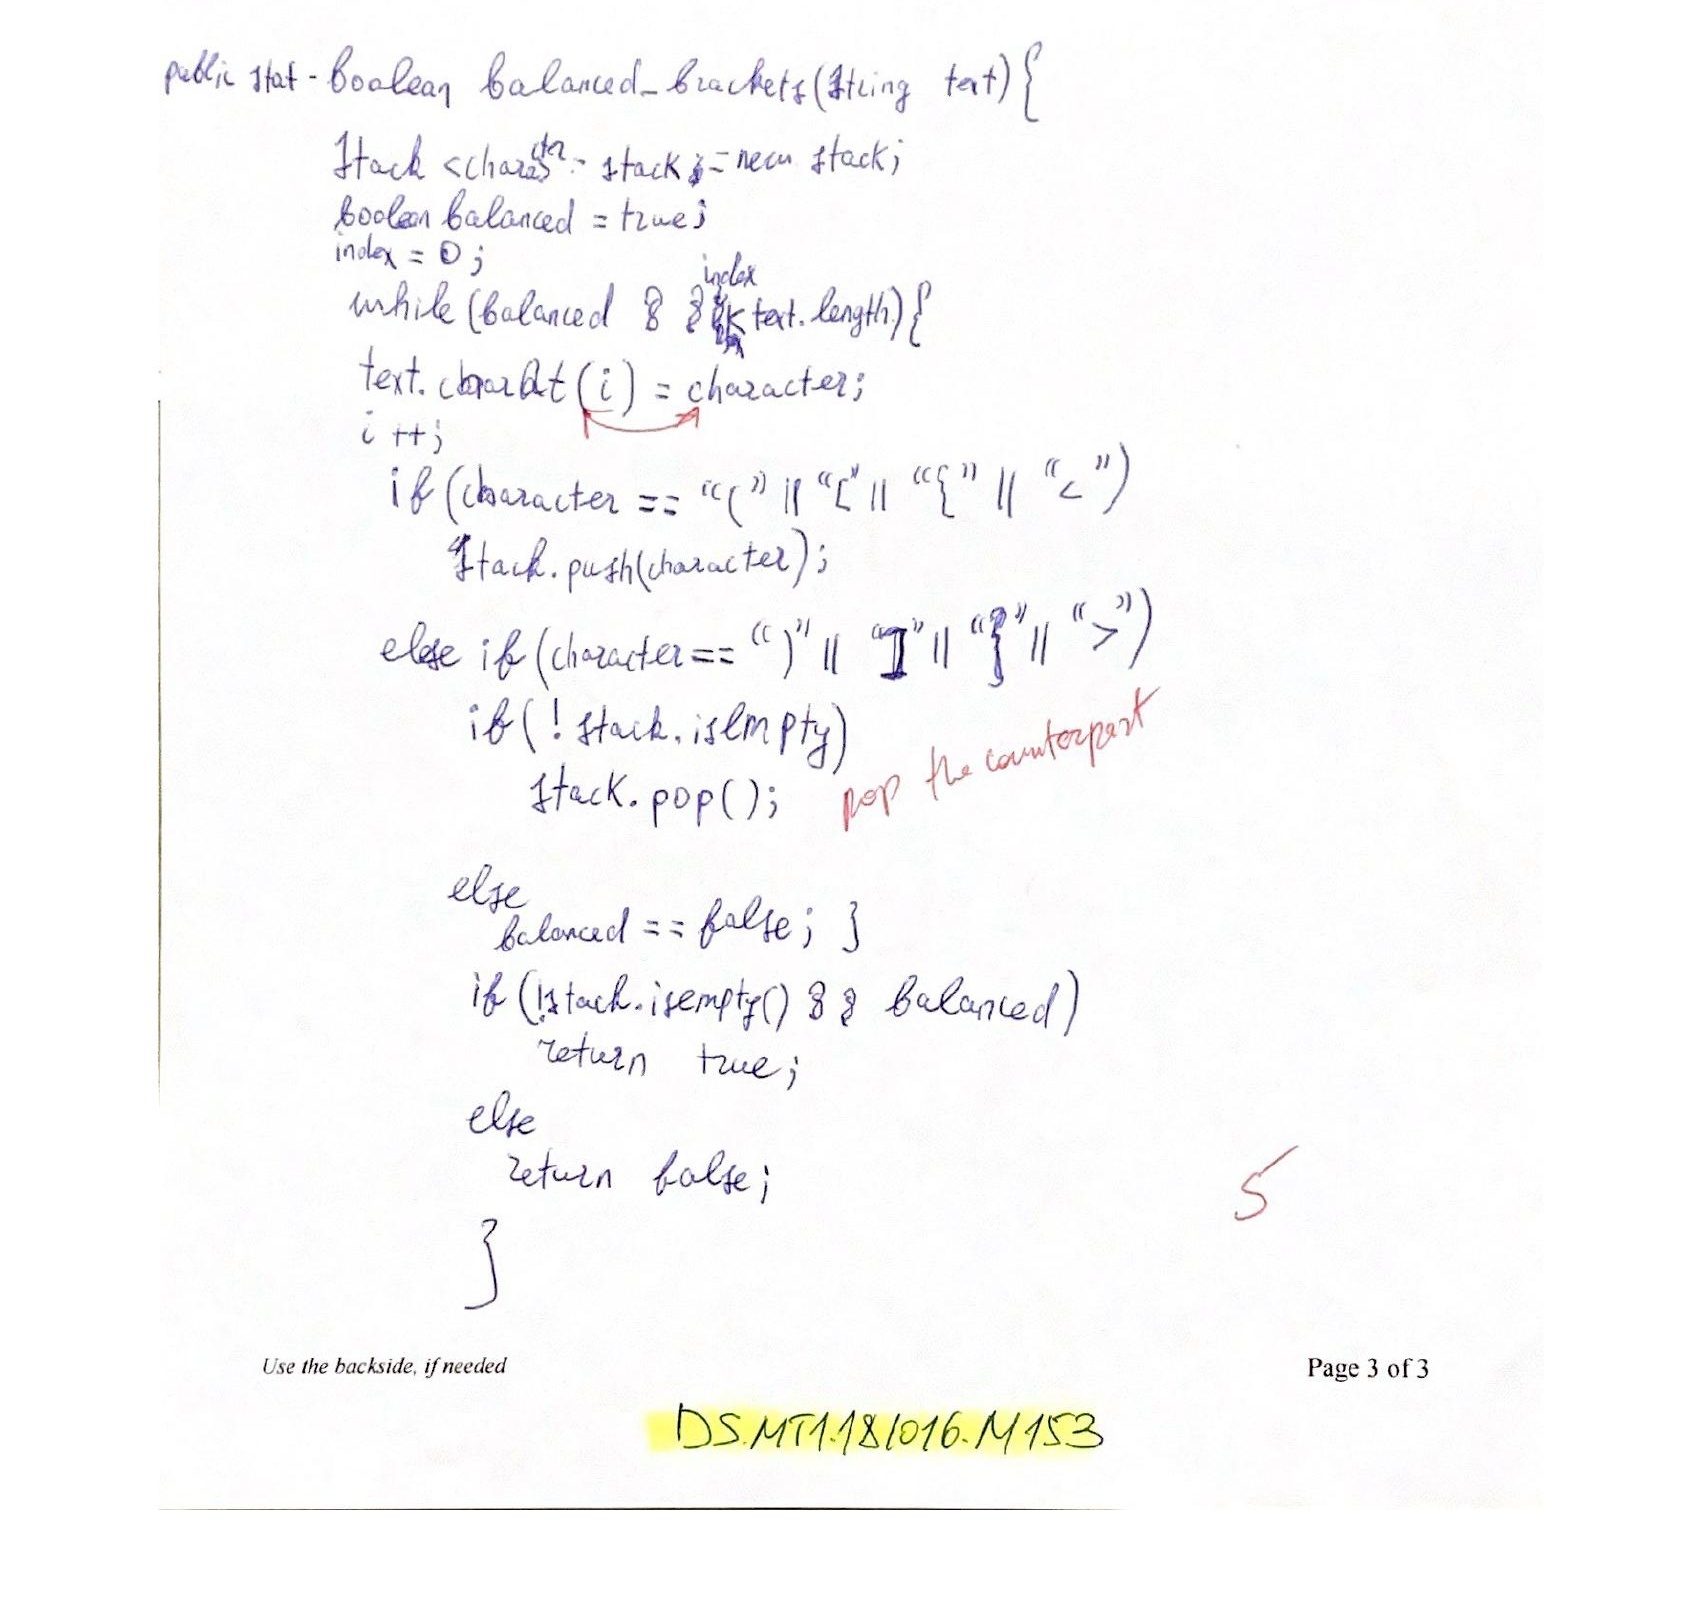 public stat - boolean balanced_brackets(String text){
Stack <character> stack = new stack;
boolean balanced = true;
index = 0;
index
while (balanced && < text.length){
text.charAt(i) = character;
i++;
if (character == "(" || "[" || "{" || "<")
stack.push(character);
else if (character == ")" || "]" || "}" || ">")
if (! stack.isEmpty)
stack.pop(); pop the counterpart
else
balanced == false; }
if (!stack.isempty() && balanced)
return true;
else
return false;
5
}
Use the backside, if needed Page 3 of 3
DS.MT1.18/016.M153